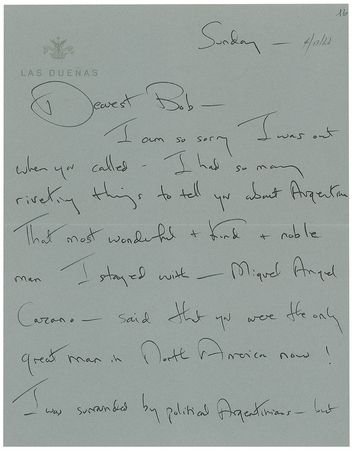 Sunday —
LAS DUEÑAS
Dearest Bob —
I am so sorry I was out
when you called - I had so many
riveting things to tell you about Argentina
That most wonderful + kind + noble
man I stayed with — Miguel Angel
Carcano — said that you were the only
great man in North America now!
I was surrounded by political Argentinians — but